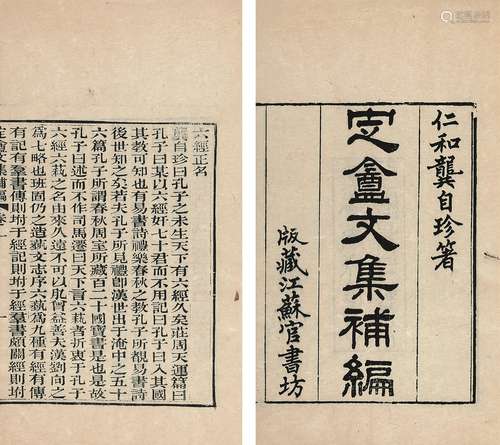 仁和龔自珍箸
定盦文集補編
版藏江蘇官書坊
六經正名
龔自珍曰孔子之未生天下有六經久矣莊周天運篇曰
孔子曰某以六經奸七十君而不用記曰孔子曰入其國
其教可知也有易書詩禮樂春秋之教孔子所覩易書詩
後世知之矣若夫孔子所見禮卽漢世出于淹中之五十
六篇孔子所謂春秋周室所藏百二十國寶書是也是故
孔子曰述而不作司馬遷曰天下言六蓺者折衷于孔子
六經六蓺之名由來久遠不可以肊曾益善夫漢劉向之
爲七略也班固仍之造蓺文志序六蓺爲九種有經有傳
有記有羣書傳則坿于經記則坿于經羣書頗關經則坿
定盦文集補編